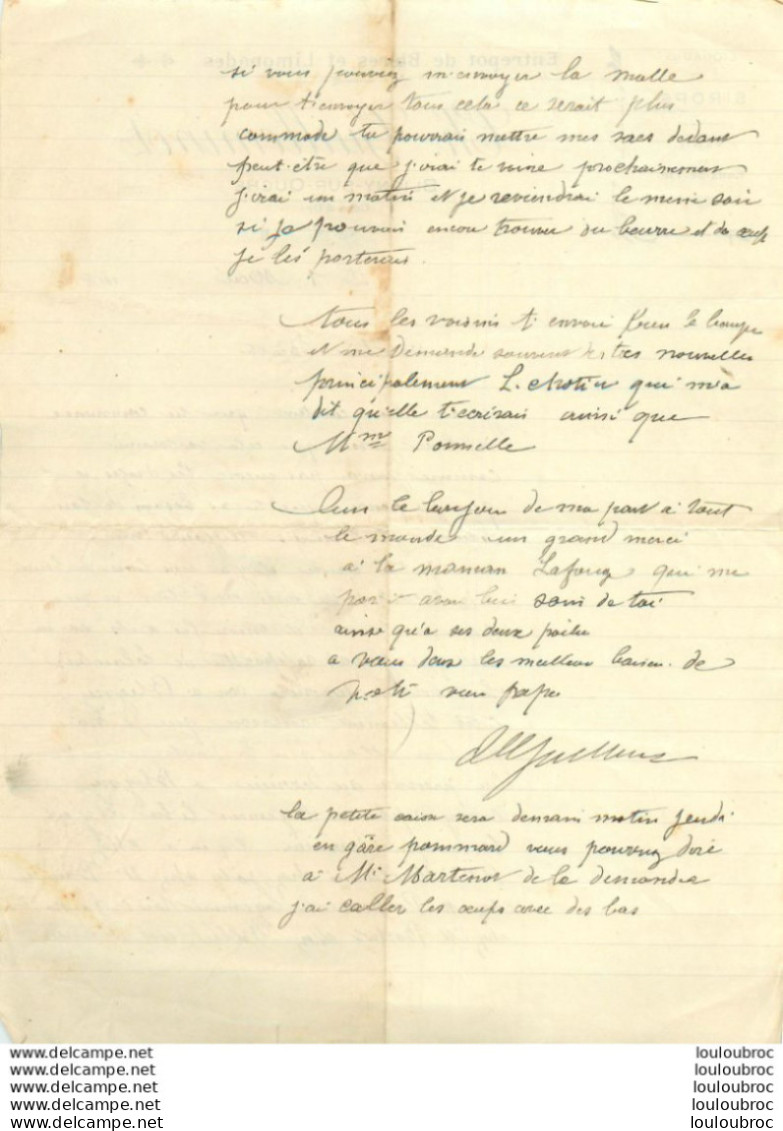 si vous pouviez m'envoyer la malle
pour t'envoyer tous cela ce serait plus
commode tu pourrai mettre mes sacs dedans
peut-être que j'irai te voire prochainement
j'irai un matin et je reviendrai le même soir
si je pouvais encore trouver du beurre et des œufs
je les porterais.
tous les voisins t'envoie bien le bonjour
et me demande souvent de tes nouvelles
principalement L. chotier qui m'a
dit qu'elle t'ecrirais ainsi que
Mme Pommelle
le bonjour de ma part à tout
le monde un grand merci
à la maman qui me
soin de toi
ainsi qu'a ses deux poilu
a vous deux les meilleur baisers de
votre vieux papa
la petite caisse sera demain matin jeudi
en gâre pommard vous pouvez dire
à Mr Martenot de la demander
j'ai caller les œufs avec des bas
www.delcampe.net
www.delcampe.net
www.delcampe.net
www.delcampe.net
www.delcampe.net
louloubroc
louloubroc
louloubroc
louloubroc
louloubroc